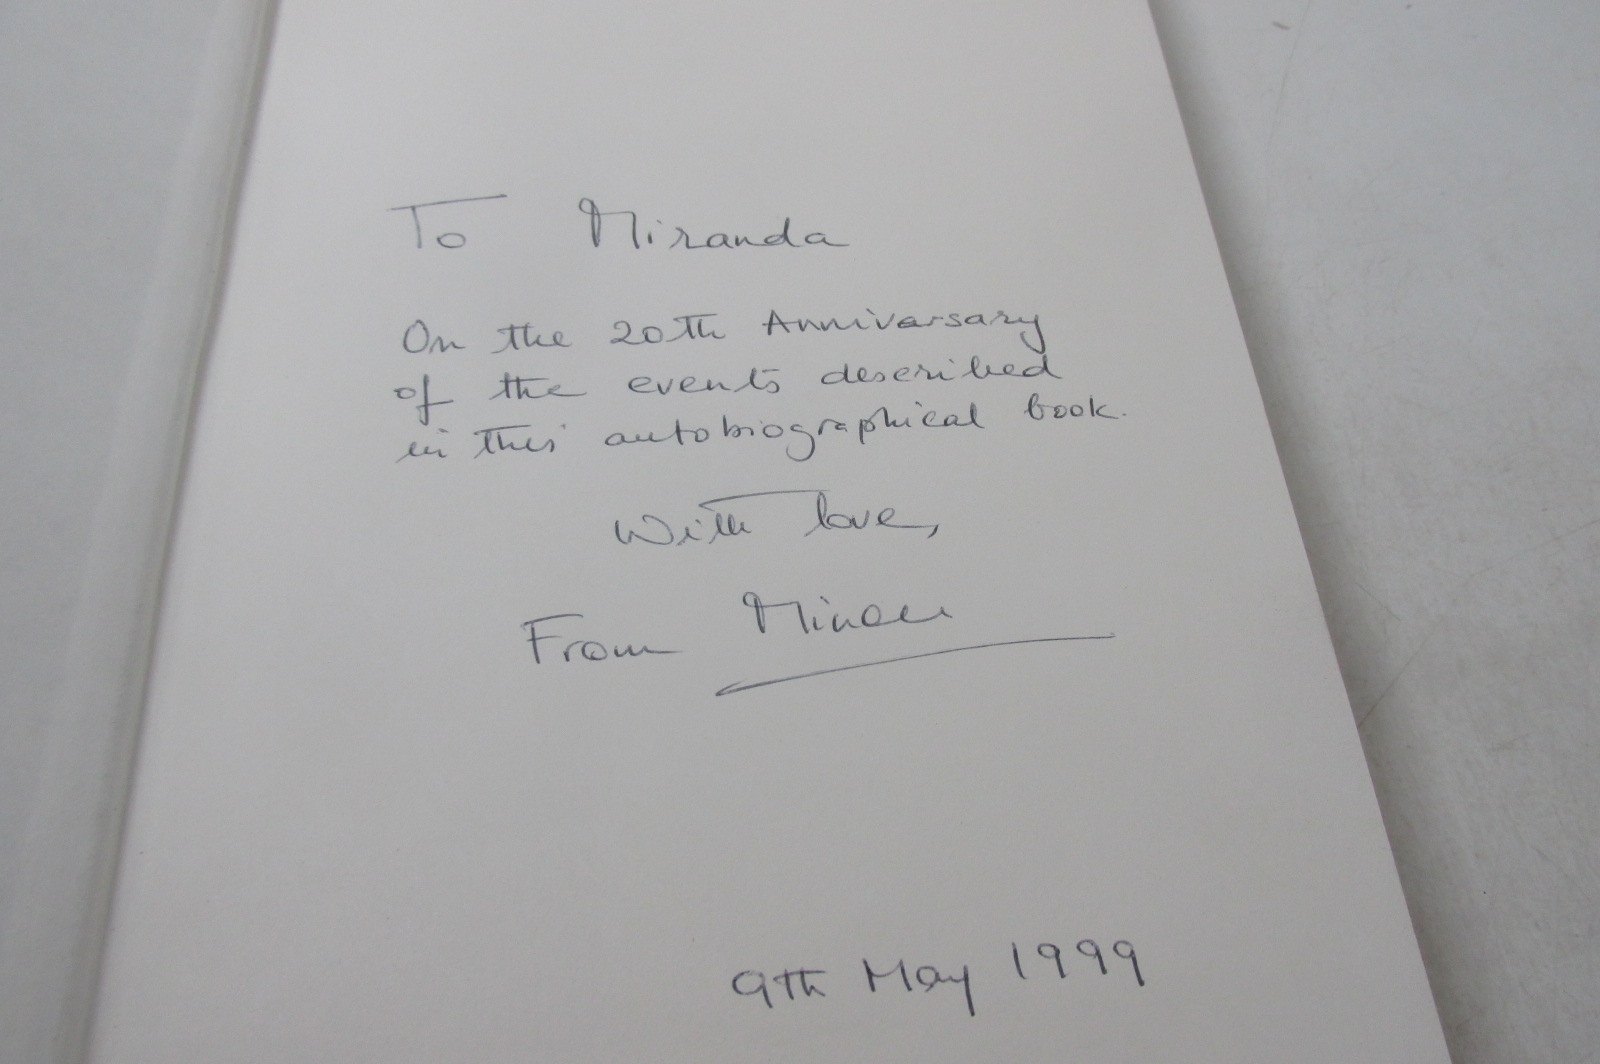 To Miranda
On the 20th Anniversary
of the events described
in this autobiographical book.
With love,
From Minou
9th May 1999